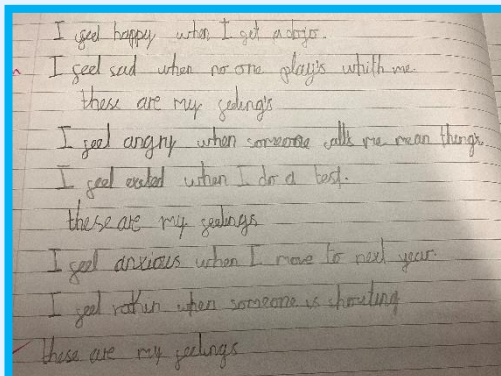 I feel happy when I get a dojo.
I feel sad when no one play's whith me.
these are my feeling's
I feel angry when someone calls me mean thing's
I feel exited when I do a test.
these are my feelings
I feel anxious when I move to next year.
I feel when someone is shouting
these are my feelings